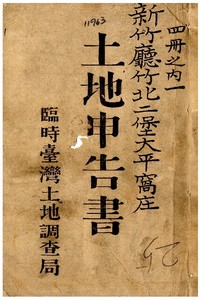 11963
四冊之內一
新竹廳竹北二堡大平窩庄
土地申告書
臨時臺灣土地調查局